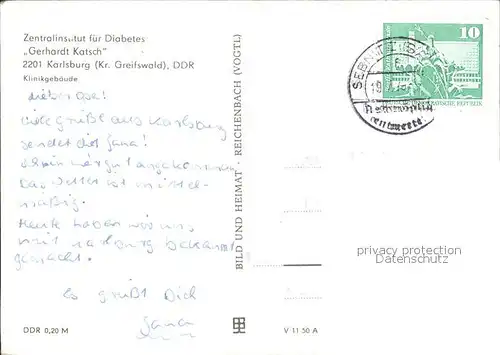 Zentralinstitut für Diabetes
„Gerhardt Katsch"
2201 Karlsburg (Kr. Greifswald), DDR
Klinikgebäude
Viele Grüße aus Karlsburg
sendet dir Jana!
Das Wetter ist mittel-
mäßig.
Heute haben wir uns
mit Karlsburg bekannt
gemacht.
Es grüßt Dich
Jana
DDR 0,20 M
BILD UND HEIMAT REICHENBACH (VOGTL)
V 11 50 A
SEBNITZ
10
DEUTSCHE DEMOKRATISCHE REPUBLIK
entwertet
privacy protection
Datenschutz